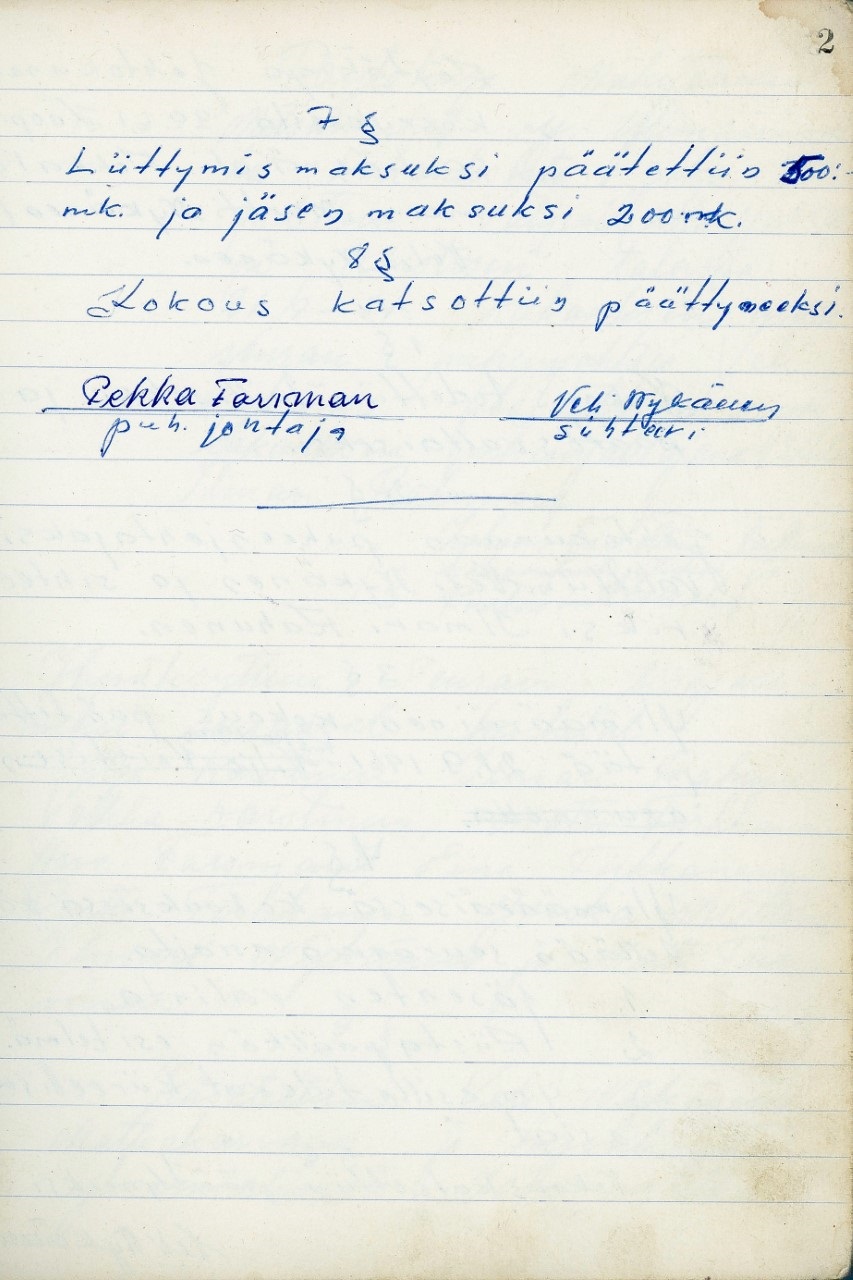 2
7 §
Liittymismaksuksi päätettiin 500:-
mk. ja jäsenmaksuksi 200 mk.
8 §
Kokous katsottiin päättyneeksi.
Pekka Forsman Veli Nykänen
puh. johtaja sihteri